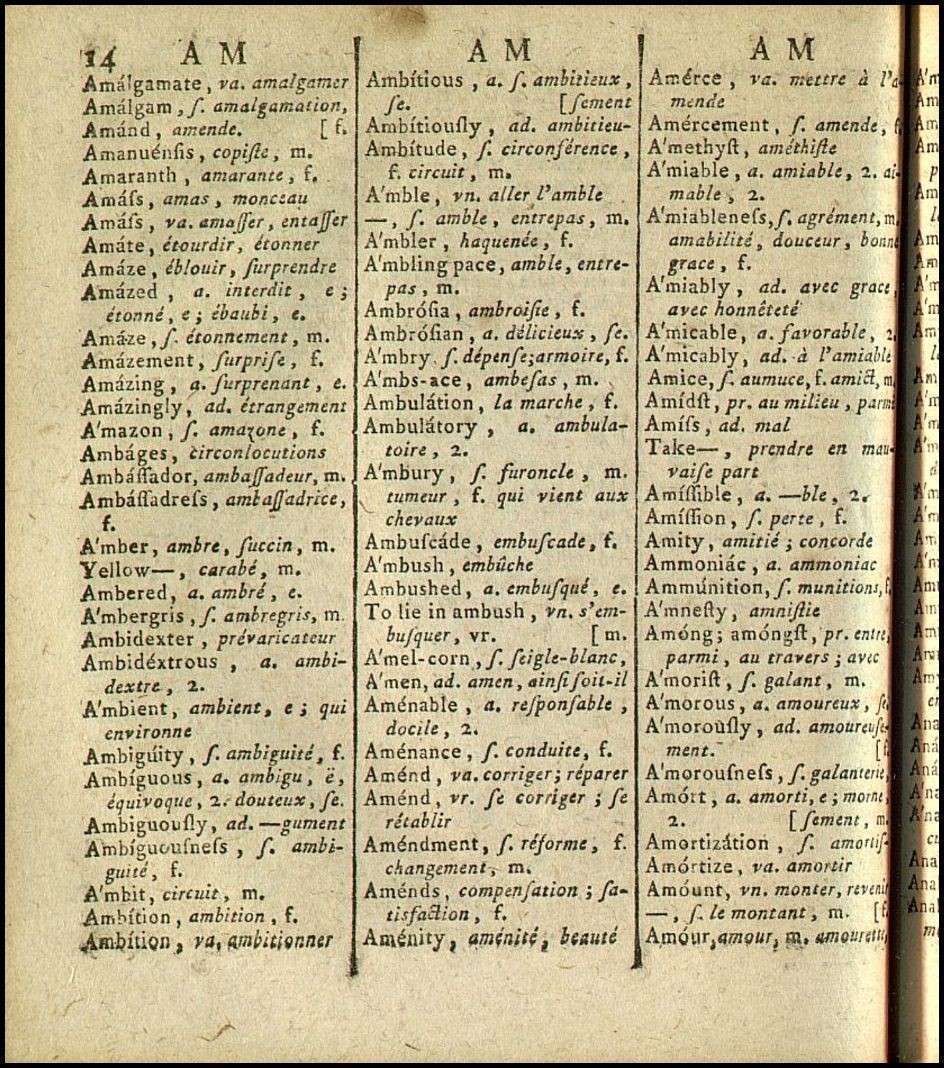 14 A M
Amálgamate, va. amalgamer
Amálgam, ſ. amalgamation,
Amánd, amende. [ f.
Amanuénſis, copiſte, m.
Amaranth, amarante, f.
Amáſs, amas, monceau
Amáſs, va. amaſſer, entaſſer
Amáte, étourdir, étonner
Amáze, éblouir, ſurprendre
Amázed, a. interdit, e;
étonné, e; ébaubi, e.
Amáze, ſ. étonnement, m.
Amázement, ſurpriſe, f.
Amázing, a. ſurprenant, e.
Amázingly, ad. étrangement
A'mazon, ſ. amazone, f.
Ambáges, circonlocutions
Ambáſſador, ambaſſadeur, m.
Ambáſſadreſs, ambaſſadrice,
f.
A'mber, ambre, ſuccin, m.
Yellow—, carabé, m.
Ambered, a. ambré, e.
A'mbergris, ſ. ambregris, m.
Ambidexter, prévaricateur
Ambidéxtrous, a. ambi-
dextre, 2.
A'mbient, ambient, e; qui
environne
Ambigúity, ſ. ambiguité, f.
Ambíguous, a. ambigu, ë,
équivoque, 2. douteux, ſe.
Ambiguouſly, ad. —gument
Ambíguouſneſs, ſ. ambi-
guité, f.
A'mbit, circuit, m.
Ambítion, ambition, f.
Ambítion, va. ambitionner
A M
Ambítious, a. ſ. ambitieux,
ſe. [ſement
Ambítiouſly, ad. ambitieu-
Ambítude, ſ. circonférence,
f. circuit, m.
A'mble, vn. aller l'amble
—, ſ. amble, entrepas, m.
A'mbler, haquenée, f.
A'mbling pace, amble, entre-
pas, m.
Ambróſia, ambroiſie, f.
Ambróſian, a. délicieux, ſe.
A'mbry ſ. dépenſe; armoire, f.
A'mbs-ace, ambeſas, m.
Ambulátion, la marche, f.
Ambulátory, a. ambula-
toire, 2.
A'mbury, ſ. furoncle, m.
tumeur, f. qui vient aux
chevaux
Ambuſcáde, embuſcade, f.
A'mbush, embûche
Ambushed, a. embuſqué, e.
To lie in ambush, vn. s'em-
buſquer, vr. [ m.
A'mel-corn, ſ. ſeigle-blanc,
A'men, ad. amen, ainſi ſoit-il
Aménable, a. reſponſable,
docile, 2.
Aménance, ſ. conduite, f.
Aménd, va. corriger; réparer
Aménd, vr. ſe corriger; ſe
rétablir
Améndment, ſ. réforme, f.
changement, m.
Aménds, compenſation; ſa-
tisfaction, f.
Aménity, aménité, beauté
A M
Amérce, va. mettre à l'a-
mende
Amércement, ſ. amende, f.
A'methyſt, améthiſte
A'miable, a. amiable, 2. ai-
mable, 2.
A'miableneſs, ſ. agrément, m.
amabilité, douceur, bonne
grace, f.
A'miably, ad. avec grace,
avec honnêteté
A'micable, a. favorable, 2.
A'micably, ad. à l'amiable
Amice, ſ. aumuce, f. amict, m.
Amídſt, pr. au milieu, parmi
Amíſs, ad. mal
Take—, prendre en mau-
vaiſe part
Amíſſible, a. —ble, 2.
Amíſſion, ſ. perte, f.
Amity, amitié; concorde
Ammoniác, a. ammoniac
Ammúnition, ſ. munitions, f.
A'mneſty, amniſtie
Amóng; amóngſt, pr. entre,
parmi, au travers; avec
A'moriſt, ſ. galant, m.
A'morous, a. amoureux, ſe
A'morouſly, ad. amoureuſe-
ment. [f.
A'morouſneſs, ſ. galanterie,
Amórt, a. amorti, e; morne,
2. [ſement, m.
Amortizátion, ſ. amortiſ-
Amórtize, va. amortir
Amóunt, vn. monter, revenir
—, ſ. le montant, m. [f.
Amóur, amour, m. amourette,